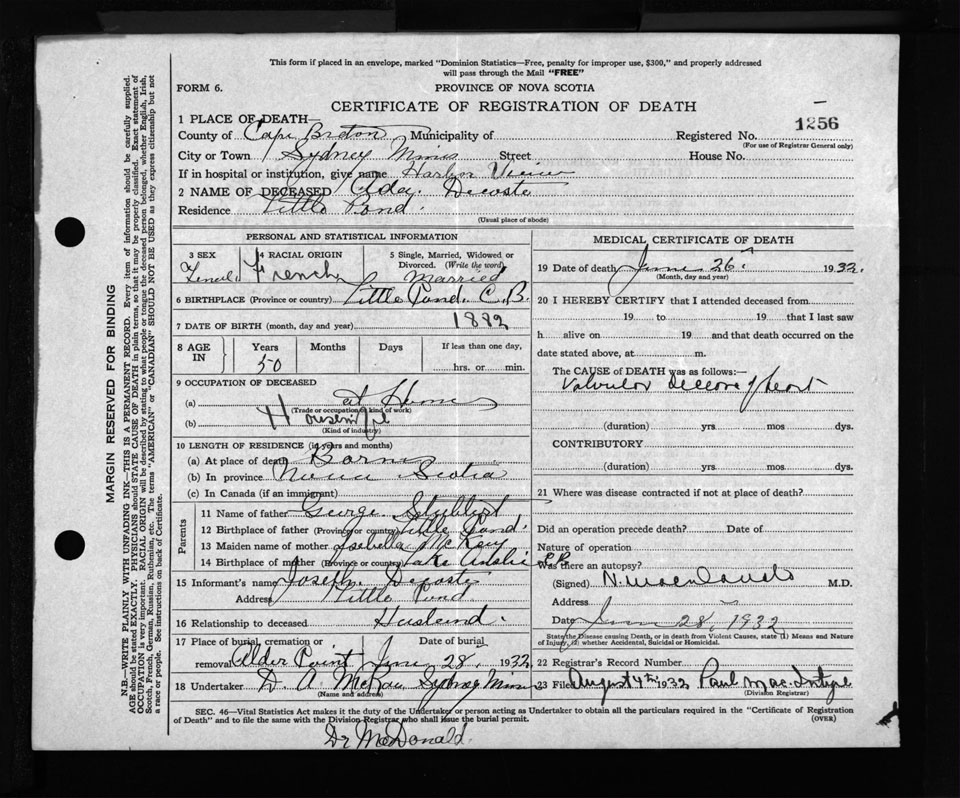 This form if placed in an envelope, marked "Dominion Statistics—Free, penalty for improper use, $300," and properly addressed
will pass through the Mail "FREE"
FORM 6.
PROVINCE OF NOVA SCOTIA
CERTIFICATE OF REGISTRATION OF DEATH
1256
1 PLACE OF DEATH—
County of Cape Breton Municipality of Registered No.
(For use of Registrar General only)
City or Town Sydney Mines Street House No.
If in hospital or institution, give name Harbor View
2 NAME OF DECEASED Decoste
Residence Little Pond.
(Usual place of abode)
PERSONAL AND STATISTICAL INFORMATION
3 SEX 4 RACIAL ORIGIN 5 Single, Married, Widowed or
Divorced. (Write the word)
French Married
6 BIRTHPLACE (Province or country) Little Pond. C.B.
7 DATE OF BIRTH (month, day and year) 1882
8 AGE IN Years Months Days If less than one day,
50 hrs. or min.
9 OCCUPATION OF DECEASED
(a) at Home
(Trade or occupation or kind of work)
(b) Housewife
(Kind of industry)
10 LENGTH OF RESIDENCE (in years and months)
(a) At place of death Born
(b) In province Nova Scotia
(c) In Canada (if an immigrant)
Parents
11 Name of father George Stubbert
12 Birthplace of father (Province or country) Little Pond.
13 Maiden name of mother Isabella McKay
14 Birthplace of mother (Province or country) Lake Ainslie C.B.
15 Informant's name Joseph Decoste
Address Little Pond
16 Relationship to deceased Husband.
17 Place of burial, cremation or removal Alder Point Date of burial June 28, 1932
18 Undertaker D. A. McRae Sydney Mines
(Name and address)
MEDICAL CERTIFICATE OF DEATH
19 Date of death June 26, 1932.
(Month, day and year)
20 I HEREBY CERTIFY that I attended deceased from
19 to 19 that I last saw
h alive on 19 and that death occurred on the
date stated above, at m.
The CAUSE of DEATH was as follows:—
Valvular disease of heart
(duration) yrs. mos. dys.
CONTRIBUTORY
(duration) yrs. mos. dys.
21 Where was disease contracted if not at place of death?
Did an operation precede death? Date of
Nature of operation
Was there an autopsy?
(Signed) M.D.
Address
Date June 28, 1932
State the Disease causing Death, or in death from Violent Causes, state (1) Means and Nature
of Injury, (2) whether Accidental, Suicidal or Homicidal.
22 Registrar's Record Number
23 Filed August 4th 1932 Paul MacIntyre
(Division Registrar)
SEC. 46—Vital Statistics Act makes it the duty of the Undertaker or person acting as Undertaker to obtain all the particulars required in the "Certificate of Registration
of Death" and to file the same with the Division Registrar who shall issue the burial permit. (OVER)
Dr McDonald.
MARGIN RESERVED FOR BINDING
N.B.—WRITE PLAINLY WITH UNFADING INK—THIS IS A PERMANENT RECORD. Every item of information should be carefully supplied.
AGE should be stated EXACTLY. PHYSICIANS should STATE CAUSE OF DEATH in plain terms, so that it may be properly classified. Exact statement of
OCCUPATION is very important. RACIAL ORIGIN will be described by stating to what people or tongue the deceased person belonged, whether English, Irish,
Scotch, French, German, Russian, Ruthenian, etc. The terms "AMERICAN" or "CANADIAN" SHOULD NOT BE USED as they express citizenship but not
a race or people. See instructions on back of Certificate.